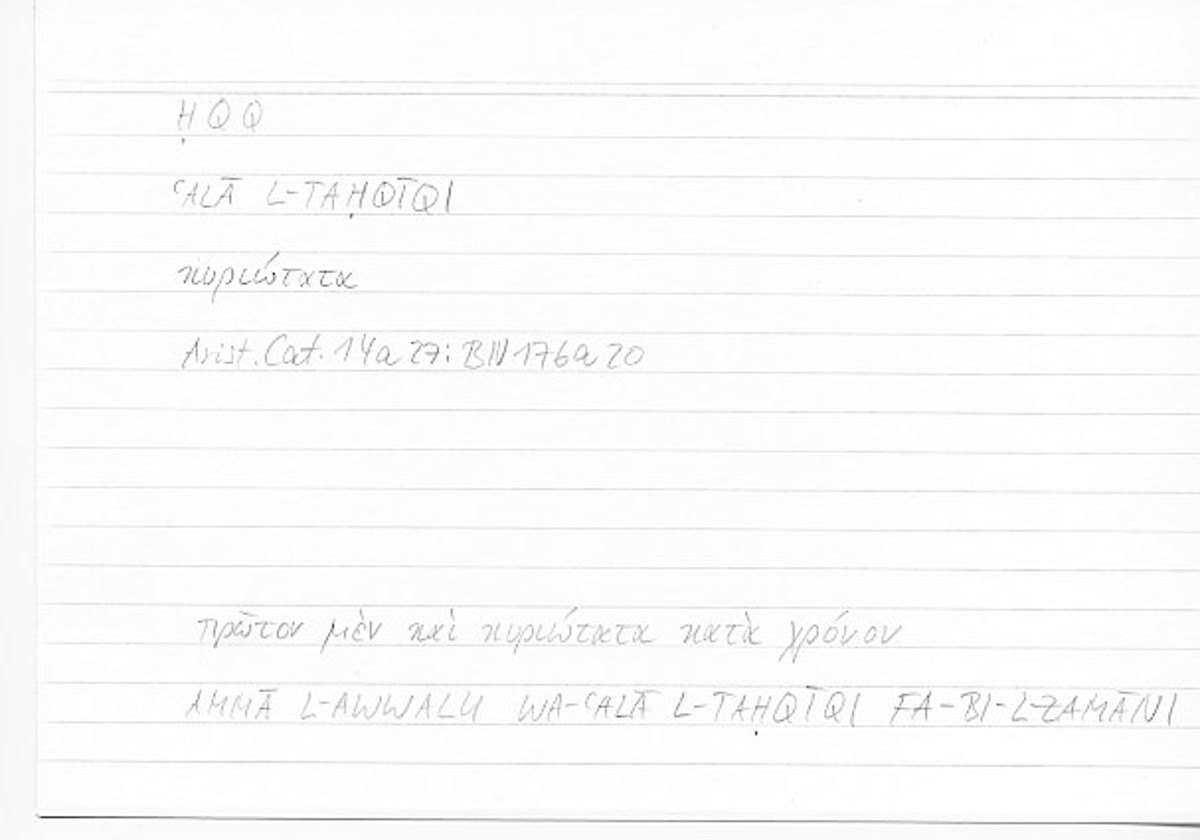 ḤQQ
ʿALĀ L-TAḤQĪQI
κυριώτατα
Arist. Cat. 14a27: BN 176a20
πρῶτον μὲν καὶ κυριώτατα κατὰ χρόνον
AMMĀ L-AWWALU WA-ʿALĀ L-TAḤQĪQI FA-BI-L-ZAMĀNI